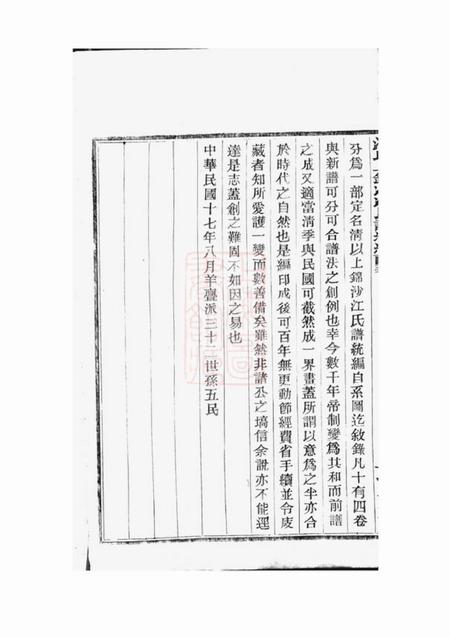 分為一部定名清以上錦沙江氏譜統編自系圖迄敘錄凡十有四卷
與新譜可分可合譜法之創例也幸今數千年帝制變為共和而前譜
之成又適當清季與民國可截然成一界畫蓋所謂以意為之半亦合
於時代之自然也是編印成後可百年無更動節經費省手續並令庋
藏者知所愛護一變而數善備矣雖然非諸公之塙信余說亦不能遲
達是志蓋創之難固不如因之易也
中華民國十七年八月羊臺派三十二世孫五民